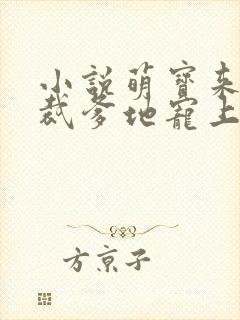 小說萌寶来
裁爹地寵上
方京子